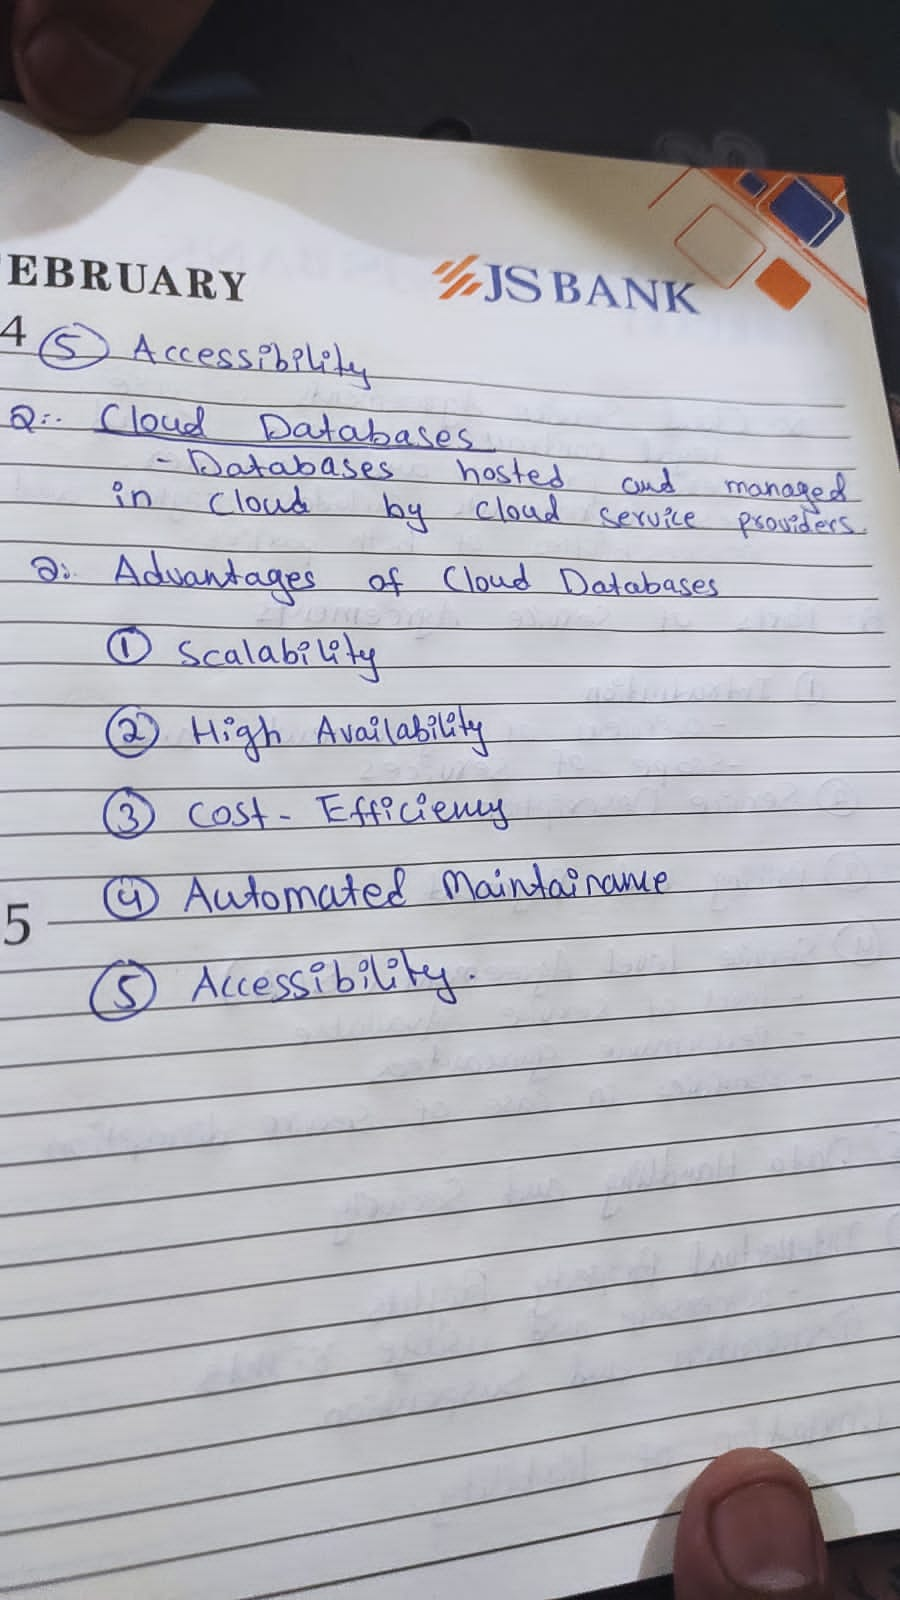 EBRUARY
JS BANK
4
⑤ Accessibility
Q:. Cloud Databases
- Databases hosted and managed
in cloud by cloud service providers
Q:. Advantages of Cloud Databases
① Scalability
② High Availability
③ Cost - Efficiency
④ Automated Maintainance
5
⑤ Accessibility.